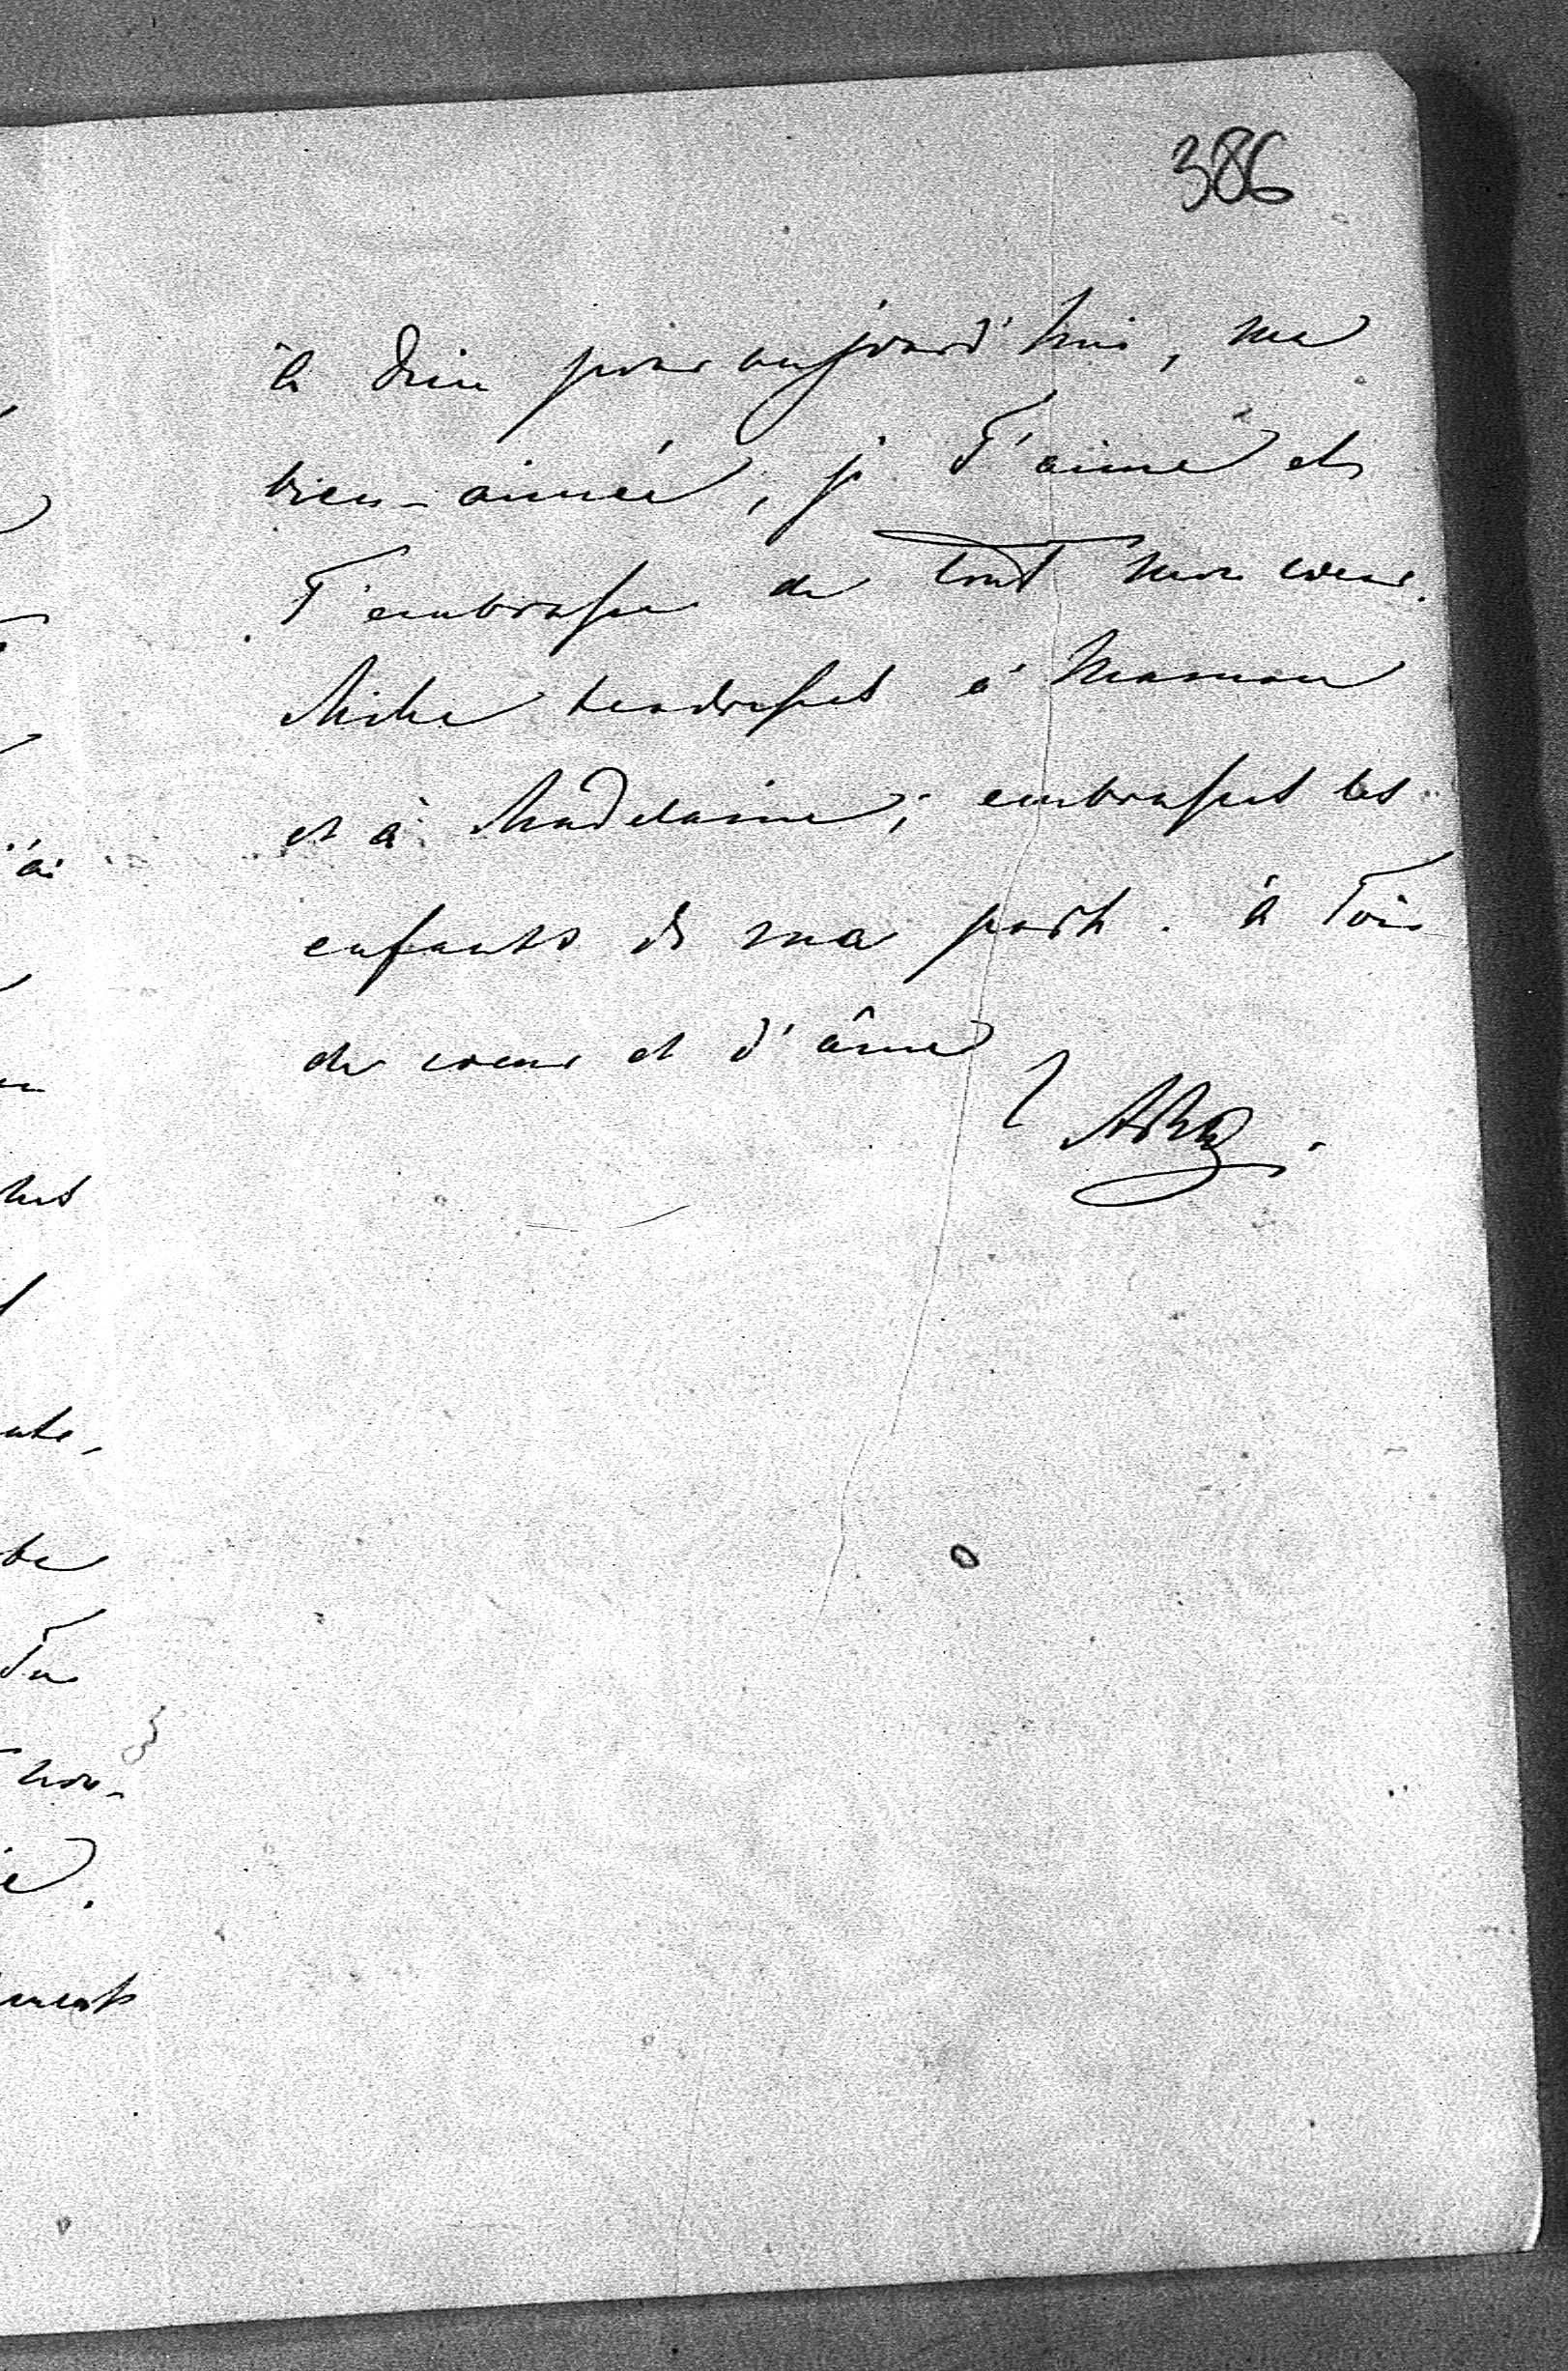 386
à Dieu pour aujourd'hui, ma
bien-aimée, je t'aime et
t'embrasse de tout mon coeur.
Mille tendresses à Maman
et à Madelaine; embrasses les
enfants de ma part. à Toi
de coeur et d'âme
'ai
ute,
Tu
ie.